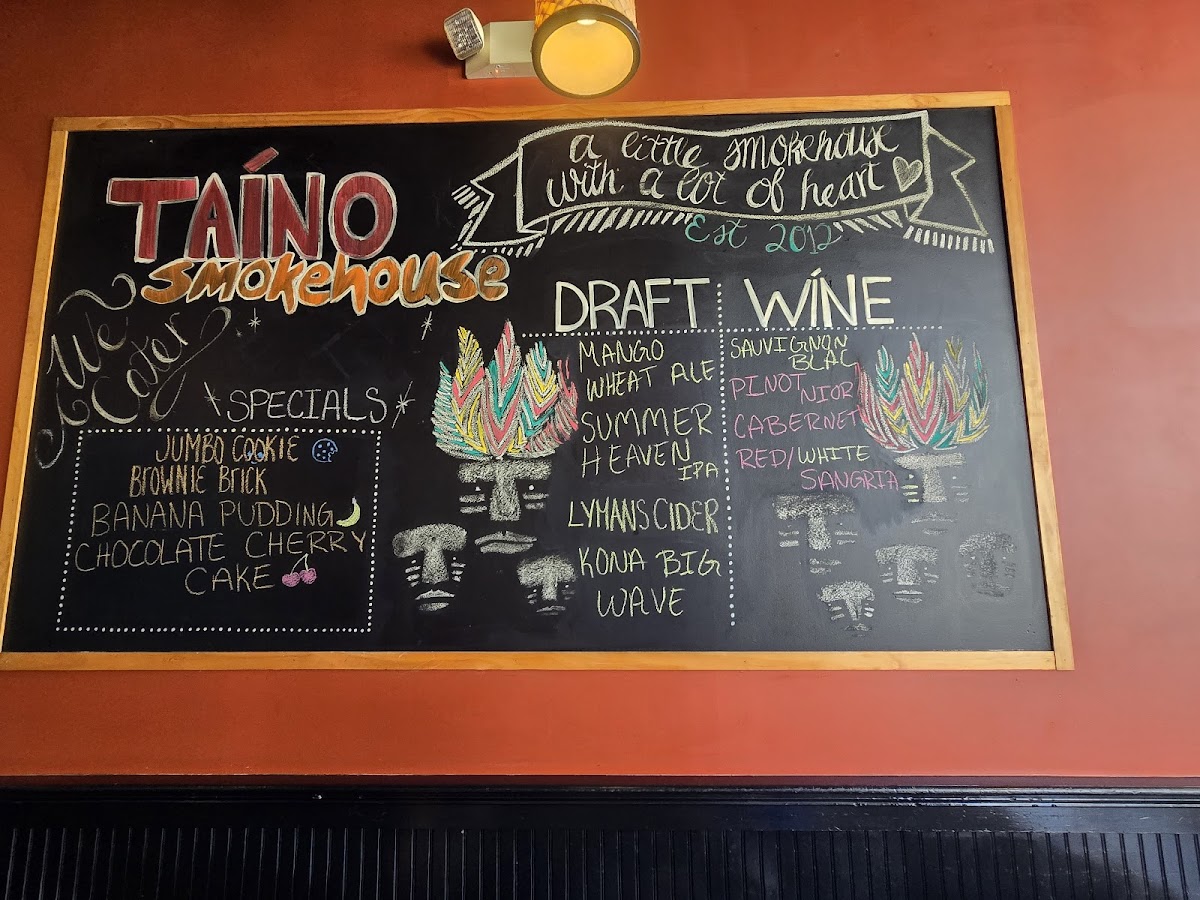 TAÍNO
smokehouse
a little smokehouse
with a lot of heart
Est 2012
We
Cater
SPECIALS
JUMBO COOKIE
BROWNIE BRICK
BANANA PUDDING
CHOCOLATE CHERRY
CAKE
DRAFT
MANGO
WHEAT ALE
SUMMER
HEAVEN
IPA
LYMANS CIDER
KONA BIG
WAVE
WÍNE
SAUVIGNON
BLAC
PINOT
NIOR
CABERNET
RED/WHITE
SANGRIA